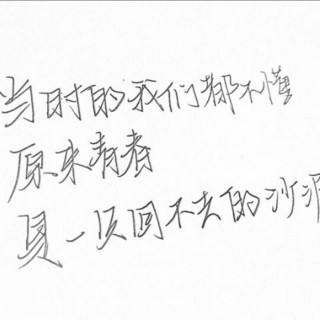 当时的我们都不懂
原来青春
是一只回不去的沙漏